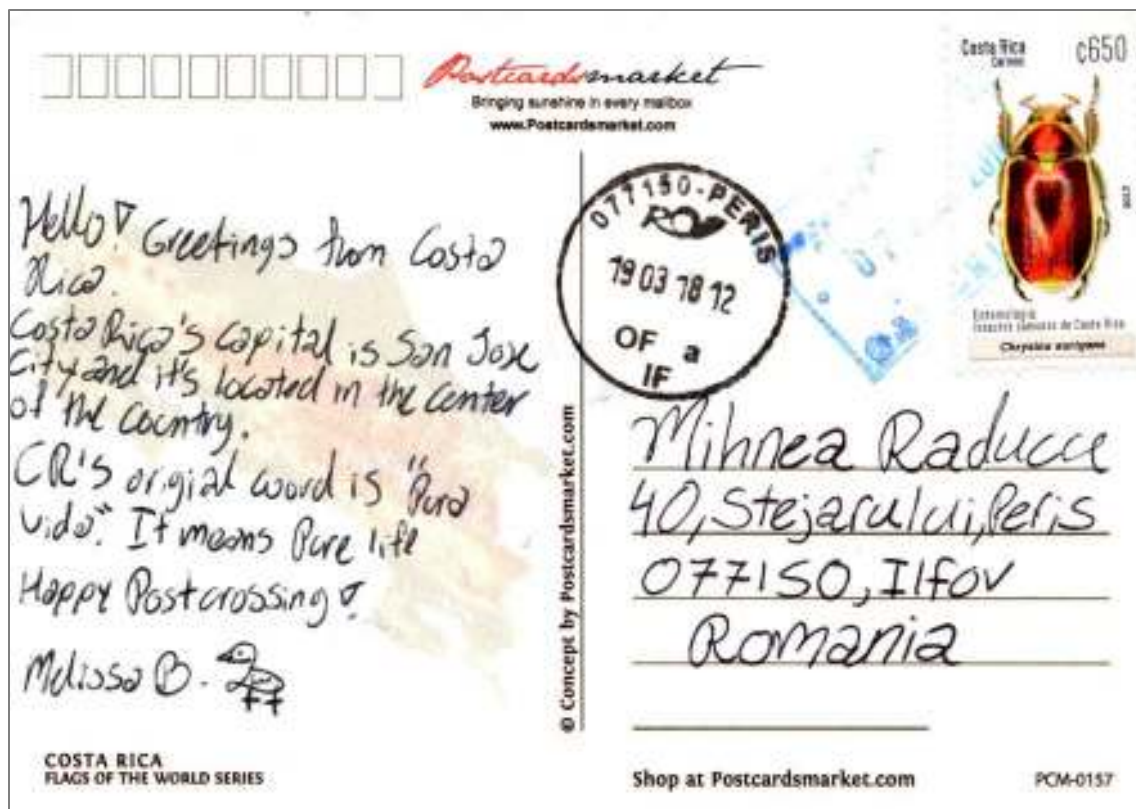 Postcardsmarket
Bringing sunshine in every mailbox
www.Postcardsmarket.com
Costa Rica
Correos
c650
2017
Entomología
Insectos famosos de Costa Rica
Chrysina aurigans
077150-PERIS
19 03 18 12
OF a
IF
Hello! Greetings from Costa
Rica.
Costa Rica's capital is San Jose
City and it's located in the center
of the country.
CR's origial word is "Pura
vida". It means Pure life
Happy Postcrossing!
Melissa B.
© Concept by Postcardsmarket.com
Mihnea Raducu
40, Stejarului, Peris
077150, Ilfov
Romania
COSTA RICA
FLAGS OF THE WORLD SERIES
Shop at Postcardsmarket.com
PCM-0157